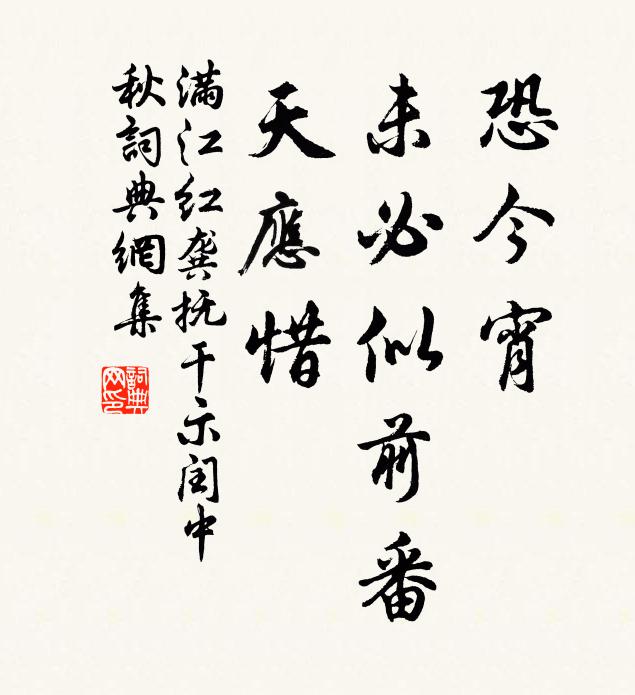 恐今宵
未必似前番
天應惜
满江红龚抚干示闰中
秋詞典網集
詞典
网印